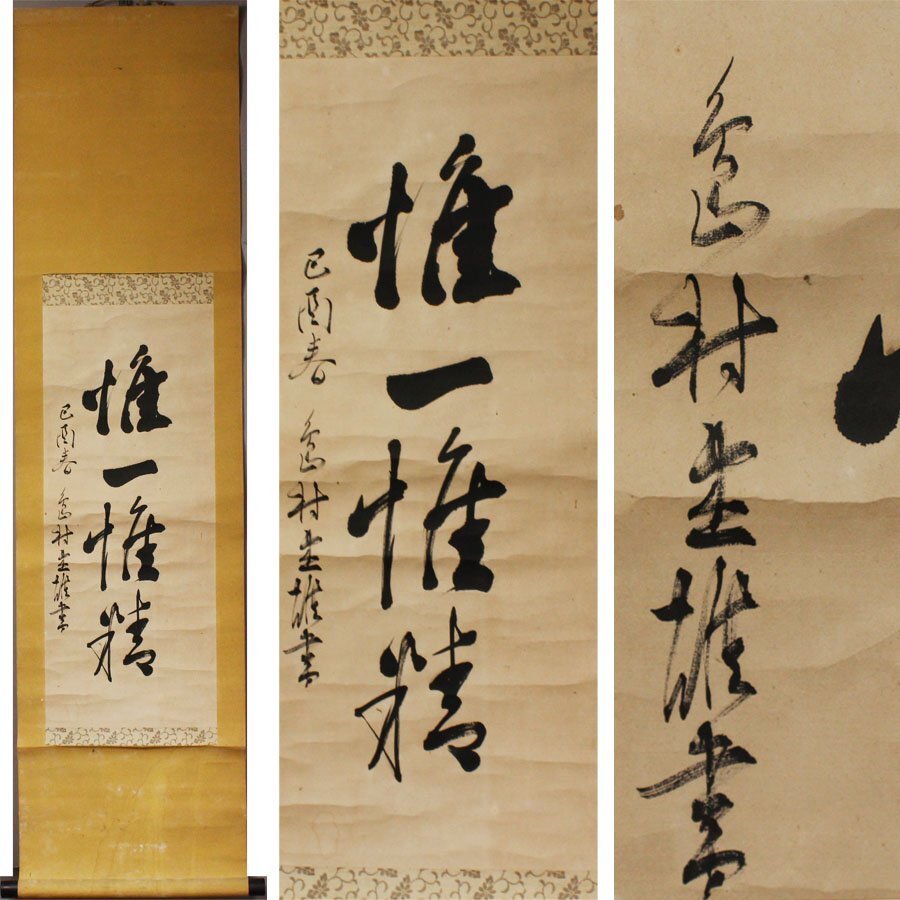 惟一惟精
己酉春 島村速雄書
惟一惟精
己酉春 島村速雄書
島村速雄書